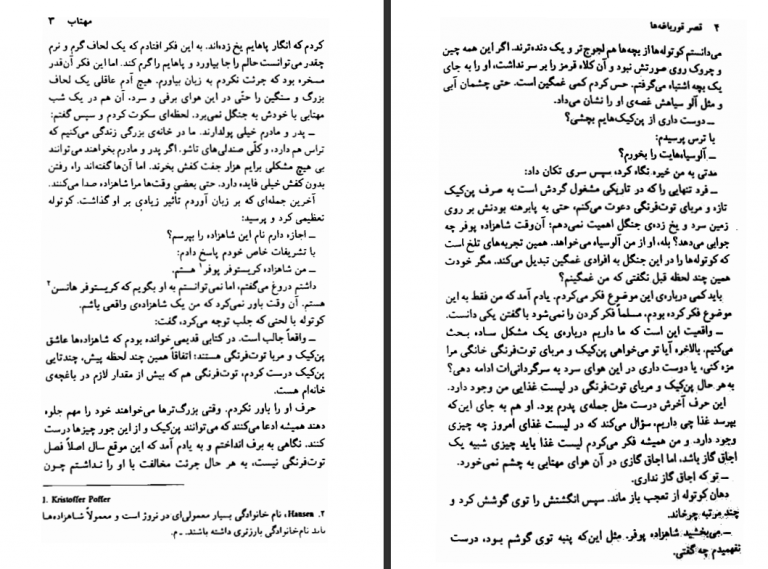 مهتاب ۳
کردم که انگار پاهایم یخ زده‌اند. به این فکر افتادم که یک لحاف گرم و نرم
چقدر می‌توانست حالم را جا بیاورد و پاهایم را گرم کند. اما این فکر آن‌قدر
مسخره بود که جرئت نکردم به زبان بیاورم. هیچ آدم عاقلی یک لحاف
بزرگ و سنگین را حتّی در این هوای برفی و سرد. آن هم در یک شب
مهتابی با خودش به جنگل نمی‌برد. لحظه‌ای سکوت کردم و سپس گفتم:
ــ پدر و مادرم خیلی پولدارند. ما در خانه‌ی بزرگی زندگی می‌کنیم که
تراس هم دارد، و کلّی صندلی‌های تاشو. اگر پدر و مادرم بخواهند می‌توانند
بی هیچ مشکلی برایم هزار جفت کفش بخرند. اما آن‌ها گفته‌اند را، رفتن
بدون کفش خیلی فایده دارد. حتی بعضی وقت‌ها مرا شاهزاده صدا می‌کنند.
آخرین جمله‌ای که بر زبان آوردم تأثیر زیادی بر او گذاشت. کوتوله
تعظیمی کرد و پرسید:
ــ اجازه دارم نام این شاهزاده را بپرسم؟
با تشریفات خاص خودم پاسخ دادم:
ــ من شاهزاده کریستوفر پوفر۱ هستم.
داشتم دروغ می‌گفتم، اما نمی‌توانستم به او بگویم که کریستوفر هانسن۲
هستم. آن وقت باور نمی‌کرد که من یک شاهزاده‌ی واقعی باشم.
کوتوله با لحنی که جلب توجه می‌کرد، گفت:
ــ واقعاً جالب است. در کتابی قدیمی خوانده بودم که شاهزاده‌ها عاشق
پن‌کیک و مربا توت‌فرنگی هستند؛ اتفاقاً همین چند لحظه پیش، چندتایی
پن‌کیک درست کردم، توت‌فرنگی هم که بیش از مقدار لازم در باغچه‌ی
خانه‌ام هست.
حرف او را باور نکردم. وقتی بزرگ‌ترها می‌خواهند خود را مهم جلوه
دهند همیشه ادعا می‌کنند که می‌توانند پن‌کیک و از این جور چیزها درست
کنند. نگاهی به برف انداختم و به یادم آمد که این موقع سال اصلاً فصل
توت‌فرنگی نیست، به هر حال جرئت مخالفت با او را نداشتم چون
1. Kristoffer Poffer
۲. Hansen، نام خانوادگی بسیار معمولی‌ای در نروژ است و معمولاً شاهزاده‌ها
باید نام‌خانوادگی بارزتری داشته باشند. ـ م.
۴ قصر قورباغه‌ها
می‌دانستم کوتوله‌ها از بچه‌ها هم لجوج‌تر و یک دنده‌ترند. اگر این همه چین
و چروک روی صورتش نبود و آن کلاه قرمز را بر سر نداشت، او را به جای
یک بچه اشتباه می‌گرفتم. حس کردم کمی غمگین است. حتی چشمان آبی
و مثل آلو سیاهش غصه‌ی او را نشان می‌داد.
ــ دوست داری از پن‌کیک‌هایم بچشی؟
با ترس پرسیدم:
ــ آلوسیاه‌هایت را بخورم؟
مدتی به من خیره نگاه کرد، سپس سری تکان داد:
ــ فرد تنهایی را که در تاریکی مشغول گردش است به صرف پن‌کیک
تازه و مربای توت‌فرنگی دعوت می‌کنم، حتی به پابرهنه بودنش بر روی
زمین سرد و یخ زده‌ی جنگل اهمیت نمی‌دهم؛ آن‌وقت شاهزاده پوفر چه
جوابی می‌دهد؟ بله، او از من آلوسیاه می‌خواهد. همین تجربه‌های تلخ است
که کوتوله‌ها را در این جنگل به افرادی غمگین تبدیل می‌کند. مگر خودت
همین چند لحظه قبل نگفتی که من غمگینم؟
باید کمی درباره‌ی این موضوع فکر می‌کردم. یادم آمد که من فقط به این
موضوع فکر کرده بودم، مسلماً فکر کردن را نمی‌شود با گفتن یکی دانست.
ــ واقعیت این است که ما داریم درباره‌ی یک مشکل ساده بحث
می‌کنیم. بالاخره آیا تو می‌خواهی پن‌کیک و مربای توت‌فرنگی خانگی مرا
مزه کنی، یا دوست داری در این هوای سرد به سرگردانی‌ات ادامه دهی؟
به هر حال پن‌کیک و مربای توت‌فرنگی در لیست غذایی من وجود دارد.
این حرف آخرش درست مثل جمله‌ی پدرم بود. او هم به جای این‌که
بپرسد غذا چی داریم، سؤال می‌کند که در لیست غذای امروز چه چیزی
وجود دارد. و من همیشه فکر می‌کردم لیست غذا باید چیزی شبیه یک
اجاق گاز باشد، اما اجاق گازی در آن هوای مهتابی به چشم نمی‌خورد.
ــ تو که اجاق گاز نداری.
دهان کوتوله از تعجب باز ماند. سپس انگشتش را توی گوشش کرد و
چند مرتبه چرخاند.
ــ می‌بخشید شاهزاده پوفر. مثل این‌که پنبه توی گوشم بود، درست
نفهمیدم چه گفتی.